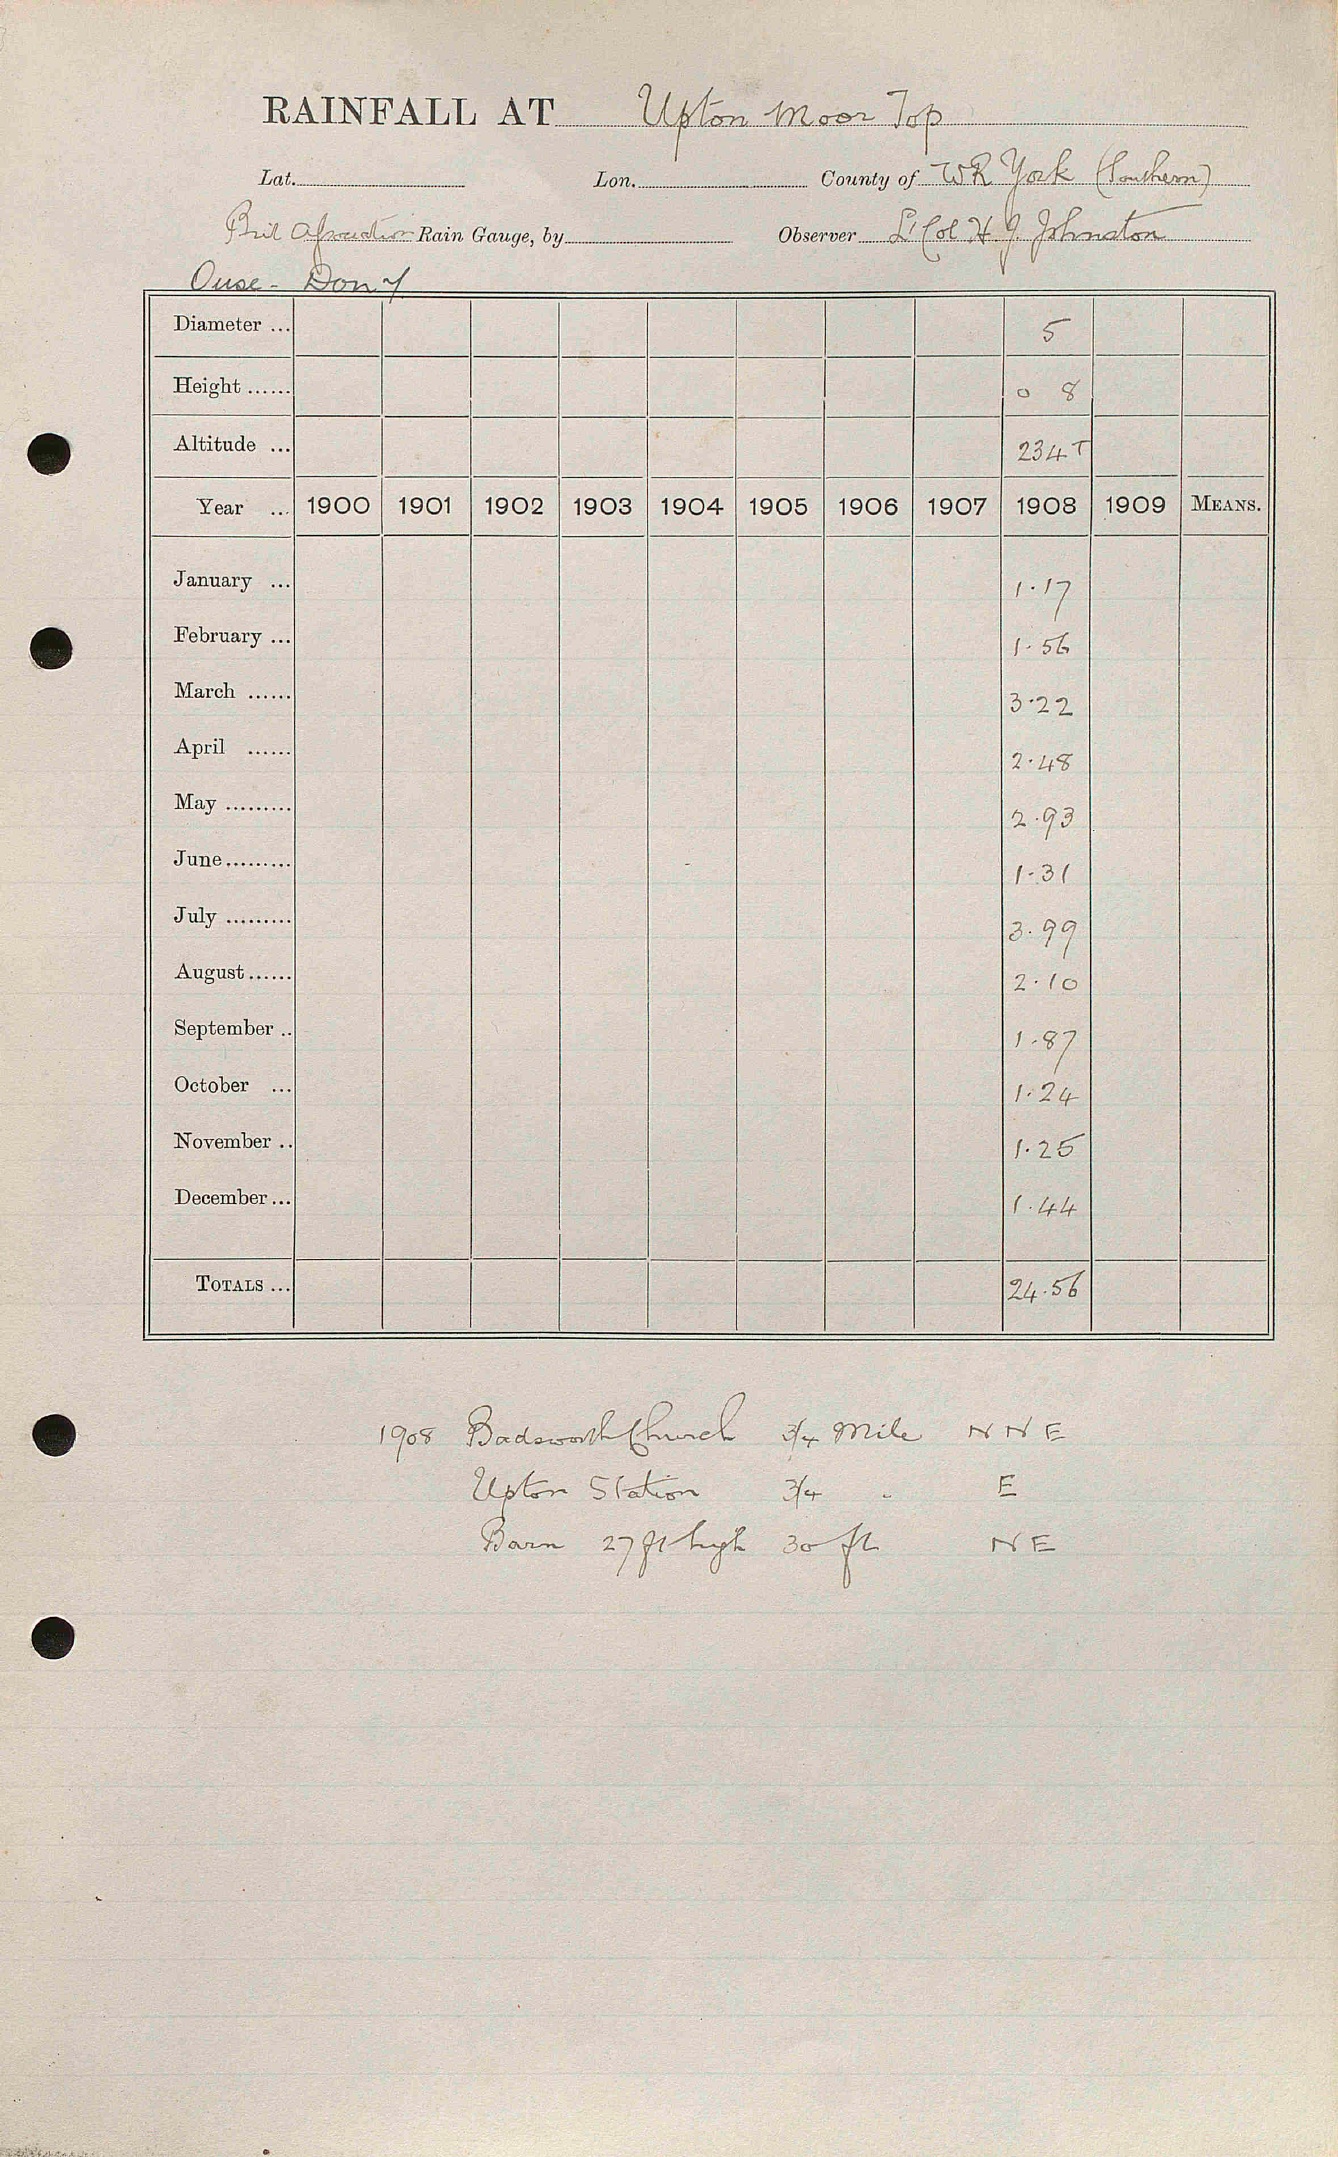 RAINFALL AT Upton Moor Top
Lat. Lon. County of WR York (Southern)
Brit Association Rain Gauge, by Observer Lt Col H. J. Johnston
Ouse - Don
Diameter ... 5
Height ...... 0 8
Altitude ... 234 T
Year ... 1900 1901 1902 1903 1904 1905 1906 1907 1908 1909 MEANS.
January ... 1.17
February ... 1.56
March ...... 3.22
April ...... 2.48
May ......... 2.93
June......... 1.31
July ......... 3.99
August...... 2.10
September .. 1.87
October ... 1.24
November .. 1.25
December... 1.44
TOTALS ... 24.56
1908 Badsworth Church 3/4 Mile N N E
Upton Station 3/4 " E
Barn 27 ft high 30 ft N E